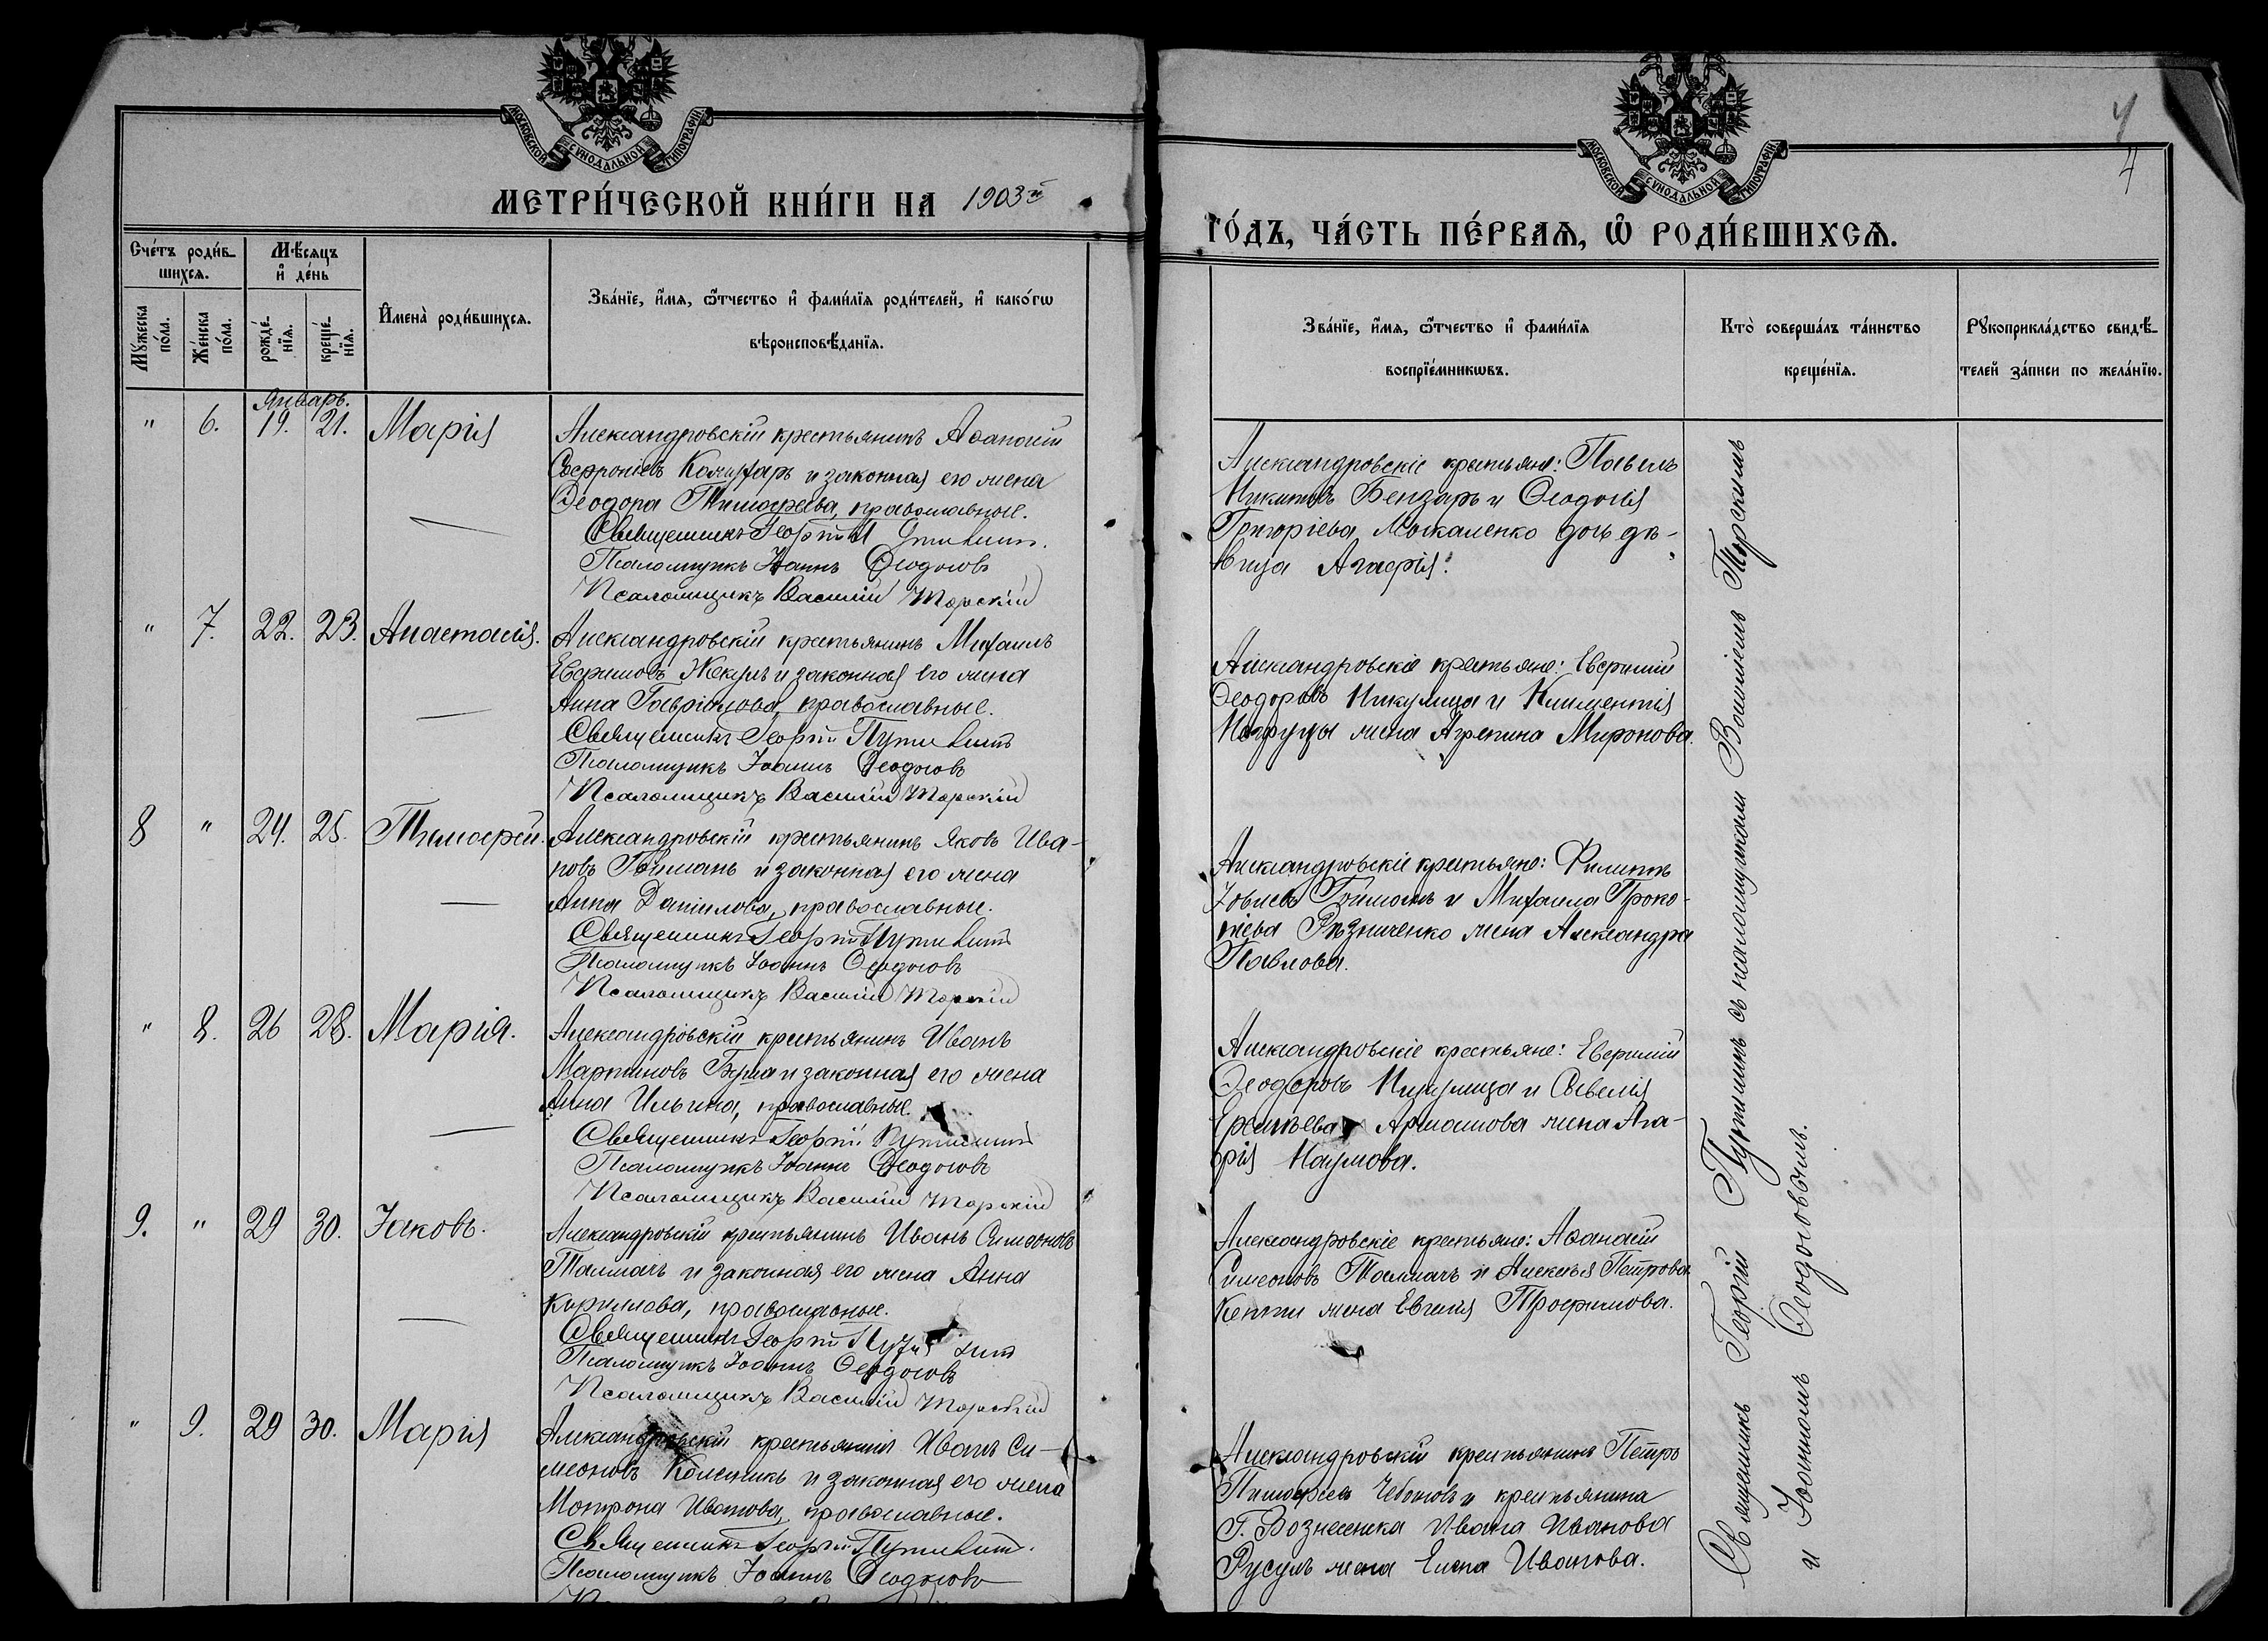 МОСКОВСКОЙ СУНОДАЛЬНОЙ ТИПОГРАФІИ
МЕТРИ́ЧЕСКОЙ КНИ́ГИ НА 1903й
Сче́тъ роди́в-
шихсѧ.
Мѣ́сяцъ
и҆ де́нь
Мꙋ́жеска
по́ла.
Же́нска
по́ла.
рожде́-
нїѧ.
креще́-
нїѧ.
И҆мена̀ роди́вшихсѧ.
Зва́нїе, и҆́мѧ, ѻ҆́тчество и҆ фами́лїѧ роди́телей, и҆ како́гѡ
вѣроисповѣ́данїѧ.
Январь.
" 6. 19. 21. Марія
Александровскій крестьянинъ Аѳанасій
Софроніевъ и законная его жена
Ѳеодора Тимофеева, православные.
Священникъ Георгій Путилинъ.
Псаломщикъ Іоаннъ Ѳеодосовъ
Псаломщикъ Василій Торскій
" 7. 22. 23. Анастасія.
Александровскій крестьянинъ Михаилъ
Евфимовъ Жекулъ и законная его жена
Анна Гавріилова, православные.
Священникъ Георгій Путилинъ
Псаломщикъ Іоаннъ Ѳеодосовъ
Псаломщикъ Василій Торскій
8 " 24. 25. Тимофей.
Александровскій крестьянинъ Яковъ Ива-
новъ Гойманъ и законная его жена
Анна Даніилова, православные.
Священникъ Георгій Путилинъ
Псаломщикъ Іоаннъ Ѳеодосовъ
Псаломщикъ Василій Торскій
" 8. 26 28. Марія.
Александровскій крестьянинъ Иванъ
Мартиновъ и законная его жена
Анна Ильина, православные.
Священникъ Георгій Путилинъ
Псаломщикъ Іоаннъ Ѳеодосовъ
Псаломщикъ Василій Торскій
9. " 29 30. Іаковъ.
Александровскій крестьянинъ Иванъ Симеоновъ
Талмачъ и законная его жена Анна
Кириллова, православные.
Священникъ Георгій Путилинъ
Псаломщикъ Іоаннъ Ѳеодосовъ
Псаломщикъ Василій Торскій
" 9. 29 30. Марія
Александровскій крестьянинъ Иванъ Си-
меоновъ Колесникъ и законная его жена
Мотрона Иванова, православные.
Священникъ Георгій Путилинъ.
Псаломщикъ Іоаннъ Ѳеодосовъ
4
4
МОСКОВСКОЙ СУНОДАЛЬНОЙ ТИПОГРАФІИ
ГО́ДЪ, ЧА́СТЬ ПЕ́РВАѦ, Ѡ҆ РОДИ́ВШИХСѦ.
Зва́нїе, и҆́мѧ, ѻ҆́тчество и҆ фами́лїѧ
воспрїе́мникѡвъ.
Кто̀ соверша́лъ та́инство
креще́нїѧ.
Рꙋкоприкла́дство свидѣ́-
телей за́писи по жела́нїю.
Александровскіе крестьяне: Павелъ
Никитовъ Бензарь и Ѳеодосія
Григоріева Москаленко дочь дѣ-
вица Агафія.
Александровскіе крестьяне: Евфимій
Ѳеодоровъ Никулица и Климентія
жена Агрепина Миронова.
Александровскіе крестьяне: Филиппъ
Іовлевъ Гойманъ и Михаила Проко-
піева Рѣзниченко жена Александра
Павлова.
Александровскіе крестьяне: Евфимій
Ѳеодоровъ Никулица и Савелія
Ермилева жена Ага-
фія Наумова.
Александровскіе крестьяне: Аѳанасій
Симеоновъ Талмачъ и Алексѣя Петрова
Кепти жена Евгенія Трофимова.
Александровскій крестьянинъ Петръ
Тимофеевъ Чеботовъ и крестьянина
Г. Вознесенска Ивана Иванова
Русулъ жена Елена Иванова.
Священникъ Георгій Путилинъ съ псаломщиками Василіемъ Торскимъ
и Іоанномъ Ѳеодосовымъ.